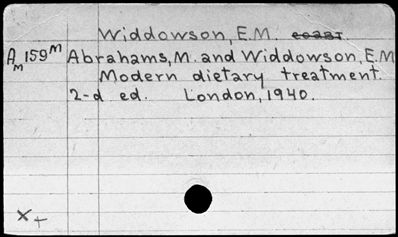 Widdowson, E.M.
A M 159 M Abrahams, M. and Widdowson, E.M
Modern dietary treatment.
2-d ed. London, 1940.
x +